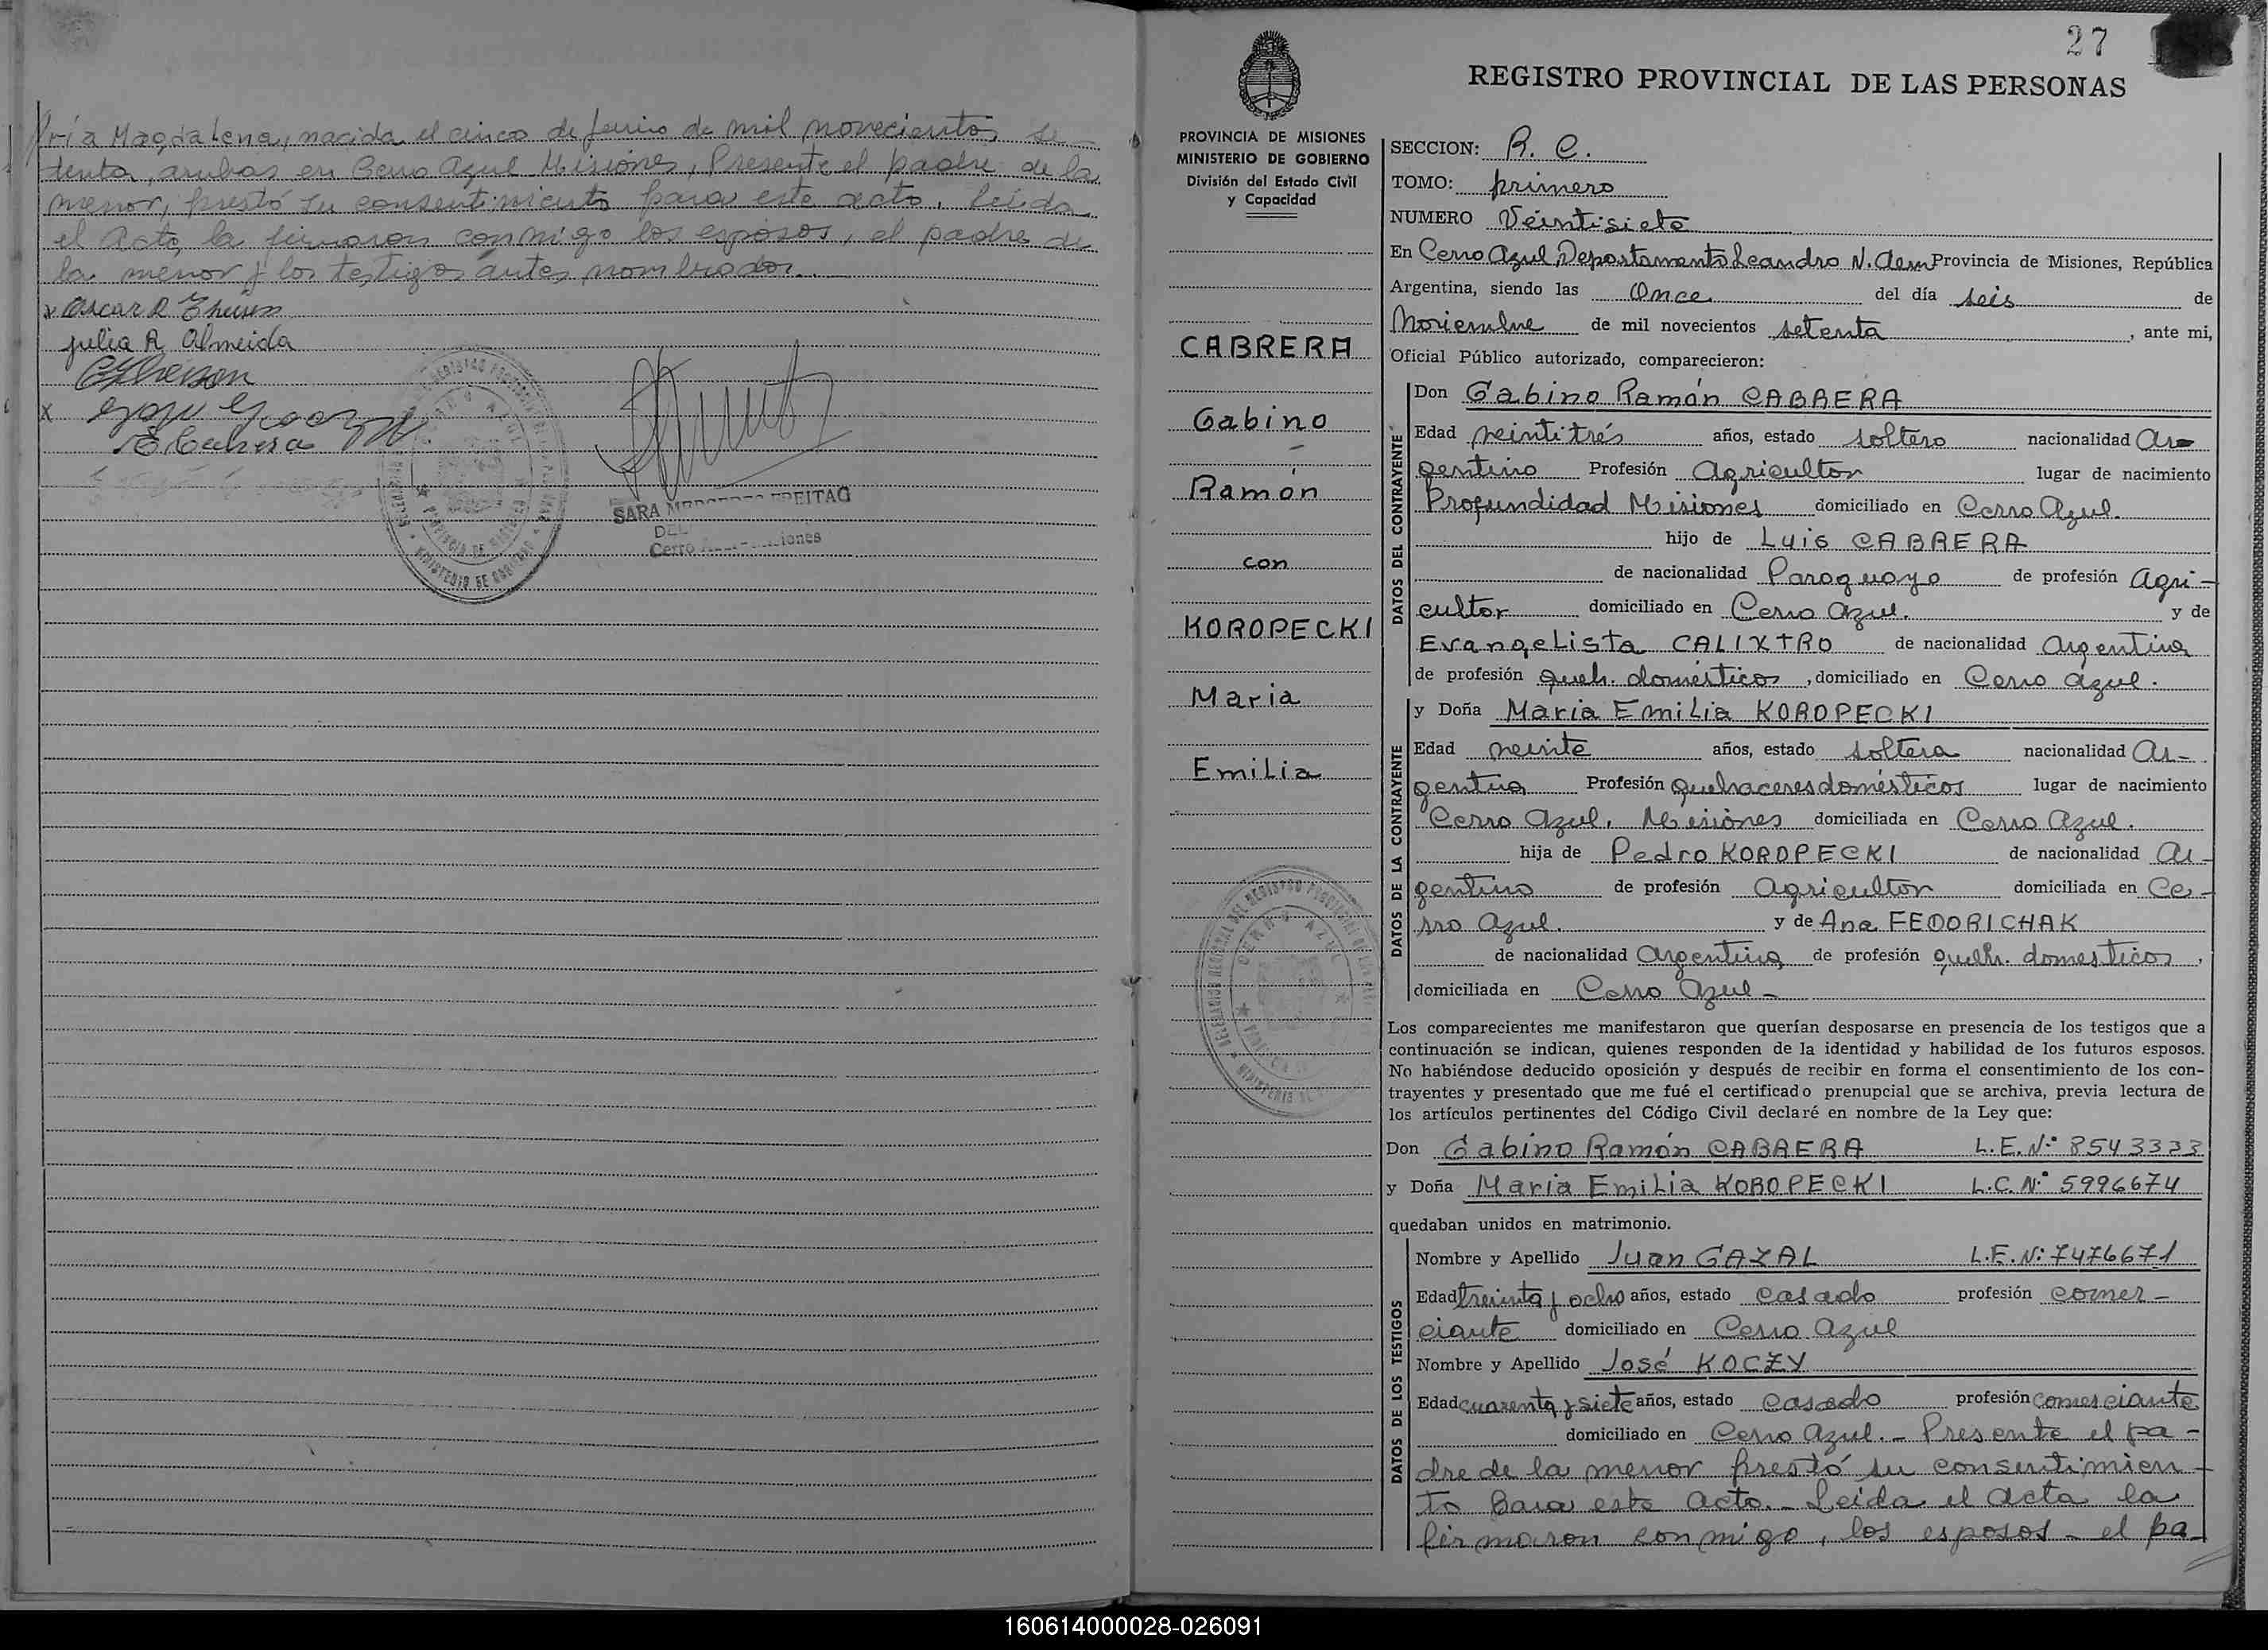 ría Magdalena, nacida el cinco de junio de mil novecientos se-
tenta, ambas en Cerro Azul Misiones, Presente el padre de la
menor, prestó su consentimiento para este acto. Leída
el Acta, la firmaron conmigo los esposos, el padre de
la menor y los testigos antes nombrados.
x Oscar R
julia R Almeida
x
E Cabrera
SARA FREITAG
DEL
Cerro iones
27
REGISTRO PROVINCIAL DE LAS PERSONAS
PROVINCIA DE MISIONES
MINISTERIO DE GOBIERNO
División del Estado Civil
y Capacidad
CABRERA
Gabino
Ramón
con
KOROPECKI
Maria
Emilia
CERRO AZUL
SECCION: R. C.
TOMO: primero
NUMERO Veintisiete
En Cerro Azul, Departamento Leandro N. Alem Provincia de Misiones, República
Argentina, siendo las Once del día seis de
Noviembre de mil novecientos setenta, ante mi,
Oficial Público autorizado, comparecieron:
DATOS DEL CONTRAYENTE
Don Gabino Ramón CABRERA
Edad veintitrés años, estado soltero nacionalidad Ar-
gentino Profesión Agricultor lugar de nacimiento
Profundidad Misiones domiciliado en Cerro Azul.
hijo de Luis CABRERA
de nacionalidad Paraguayo de profesión Agri-
cultor domiciliado en Cerro Azul. y de
Evangelista CALIXTRO de nacionalidad Argentina
de profesión queh. domésticos, domiciliado en Cerro Azul.
DATOS DE LA CONTRAYENTE
y Doña Maria Emilia KOROPECKI
Edad veinte años, estado soltera nacionalidad Ar-
gentina Profesión Quehaceres domésticos lugar de nacimiento
Cerro Azul. Misiones domiciliada en Cerro Azul.
hija de Pedro KOROPECKI de nacionalidad Ar-
gentino de profesión Agricultor domiciliada en Ce-
rro Azul. y de Ana FEDORICHAK
de nacionalidad Argentina de profesión queh. domesticos,
domiciliada en Cerro Azul -
Los comparecientes me manifestaron que querían desposarse en presencia de los testigos que a
continuación se indican, quienes responden de la identidad y habilidad de los futuros esposos.
No habiéndose deducido oposición y después de recibir en forma el consentimiento de los con-
trayentes y presentado que me fué el certificado prenupcial que se archiva, previa lectura de
los artículos pertinentes del Código Civil declaré en nombre de la Ley que:
Don Gabino Ramón CABRERA L.E. Nº 8543333
y Doña Maria Emilia KOROPECKI L.C. Nº 5996674
quedaban unidos en matrimonio.
DATOS DE LOS TESTIGOS
Nombre y Apellido Juan GAZAL L.E. N: 7476671
Edad treinta y ocho años, estado casado profesión comer-
ciante domiciliado en Cerro Azul
Nombre y Apellido José KOCZY
Edad cuarenta y siete años, estado casado profesión comerciante
domiciliado en Cerro Azul. - Presente el pa-
dre de la menor prestó su consentimien-
to para este acto. - Leida el acta la
firmaron conmigo, los esposos - el pa-
160614000028-026091